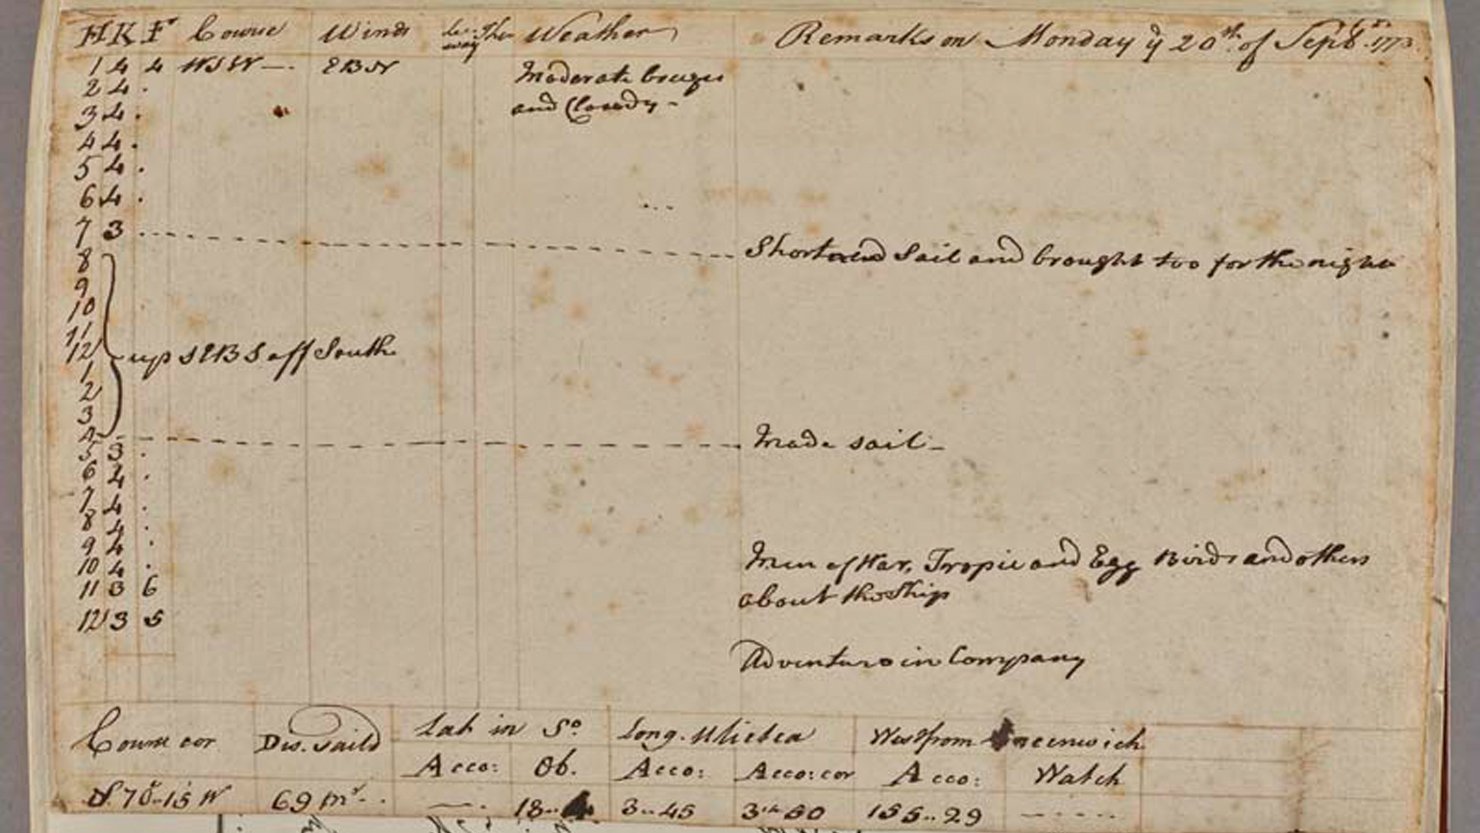 H K Fs Course Winds Lee way Ther Weather Remarks on Monday ye 20th of Septbr 1773
1 4 4 WSW — EBN Moderate breezes
2 4 . and Cloudy -
3 4 .
4 4 .
5 4 .
6 4 .
7 3 . Shortned Sail and brought too for the night
8
9
10
11
12 up SEBS off South
1
2
3
4 Made sail -
5 3 .
6 4 .
7 4 .
8 4 .
9 4 .
10 4 . Men of War, Tropic and Egg Birds and others
11 3 6 about the Ship
12 3 5
Adventure in Company
Course cor Dis. Saild Lat in So. Long. Ulietea West from Greenwich
Acco: Ob. Acco: Acco: cor Acco: Watch
69 ms. — 18.. 3..45 155..29 - - - -